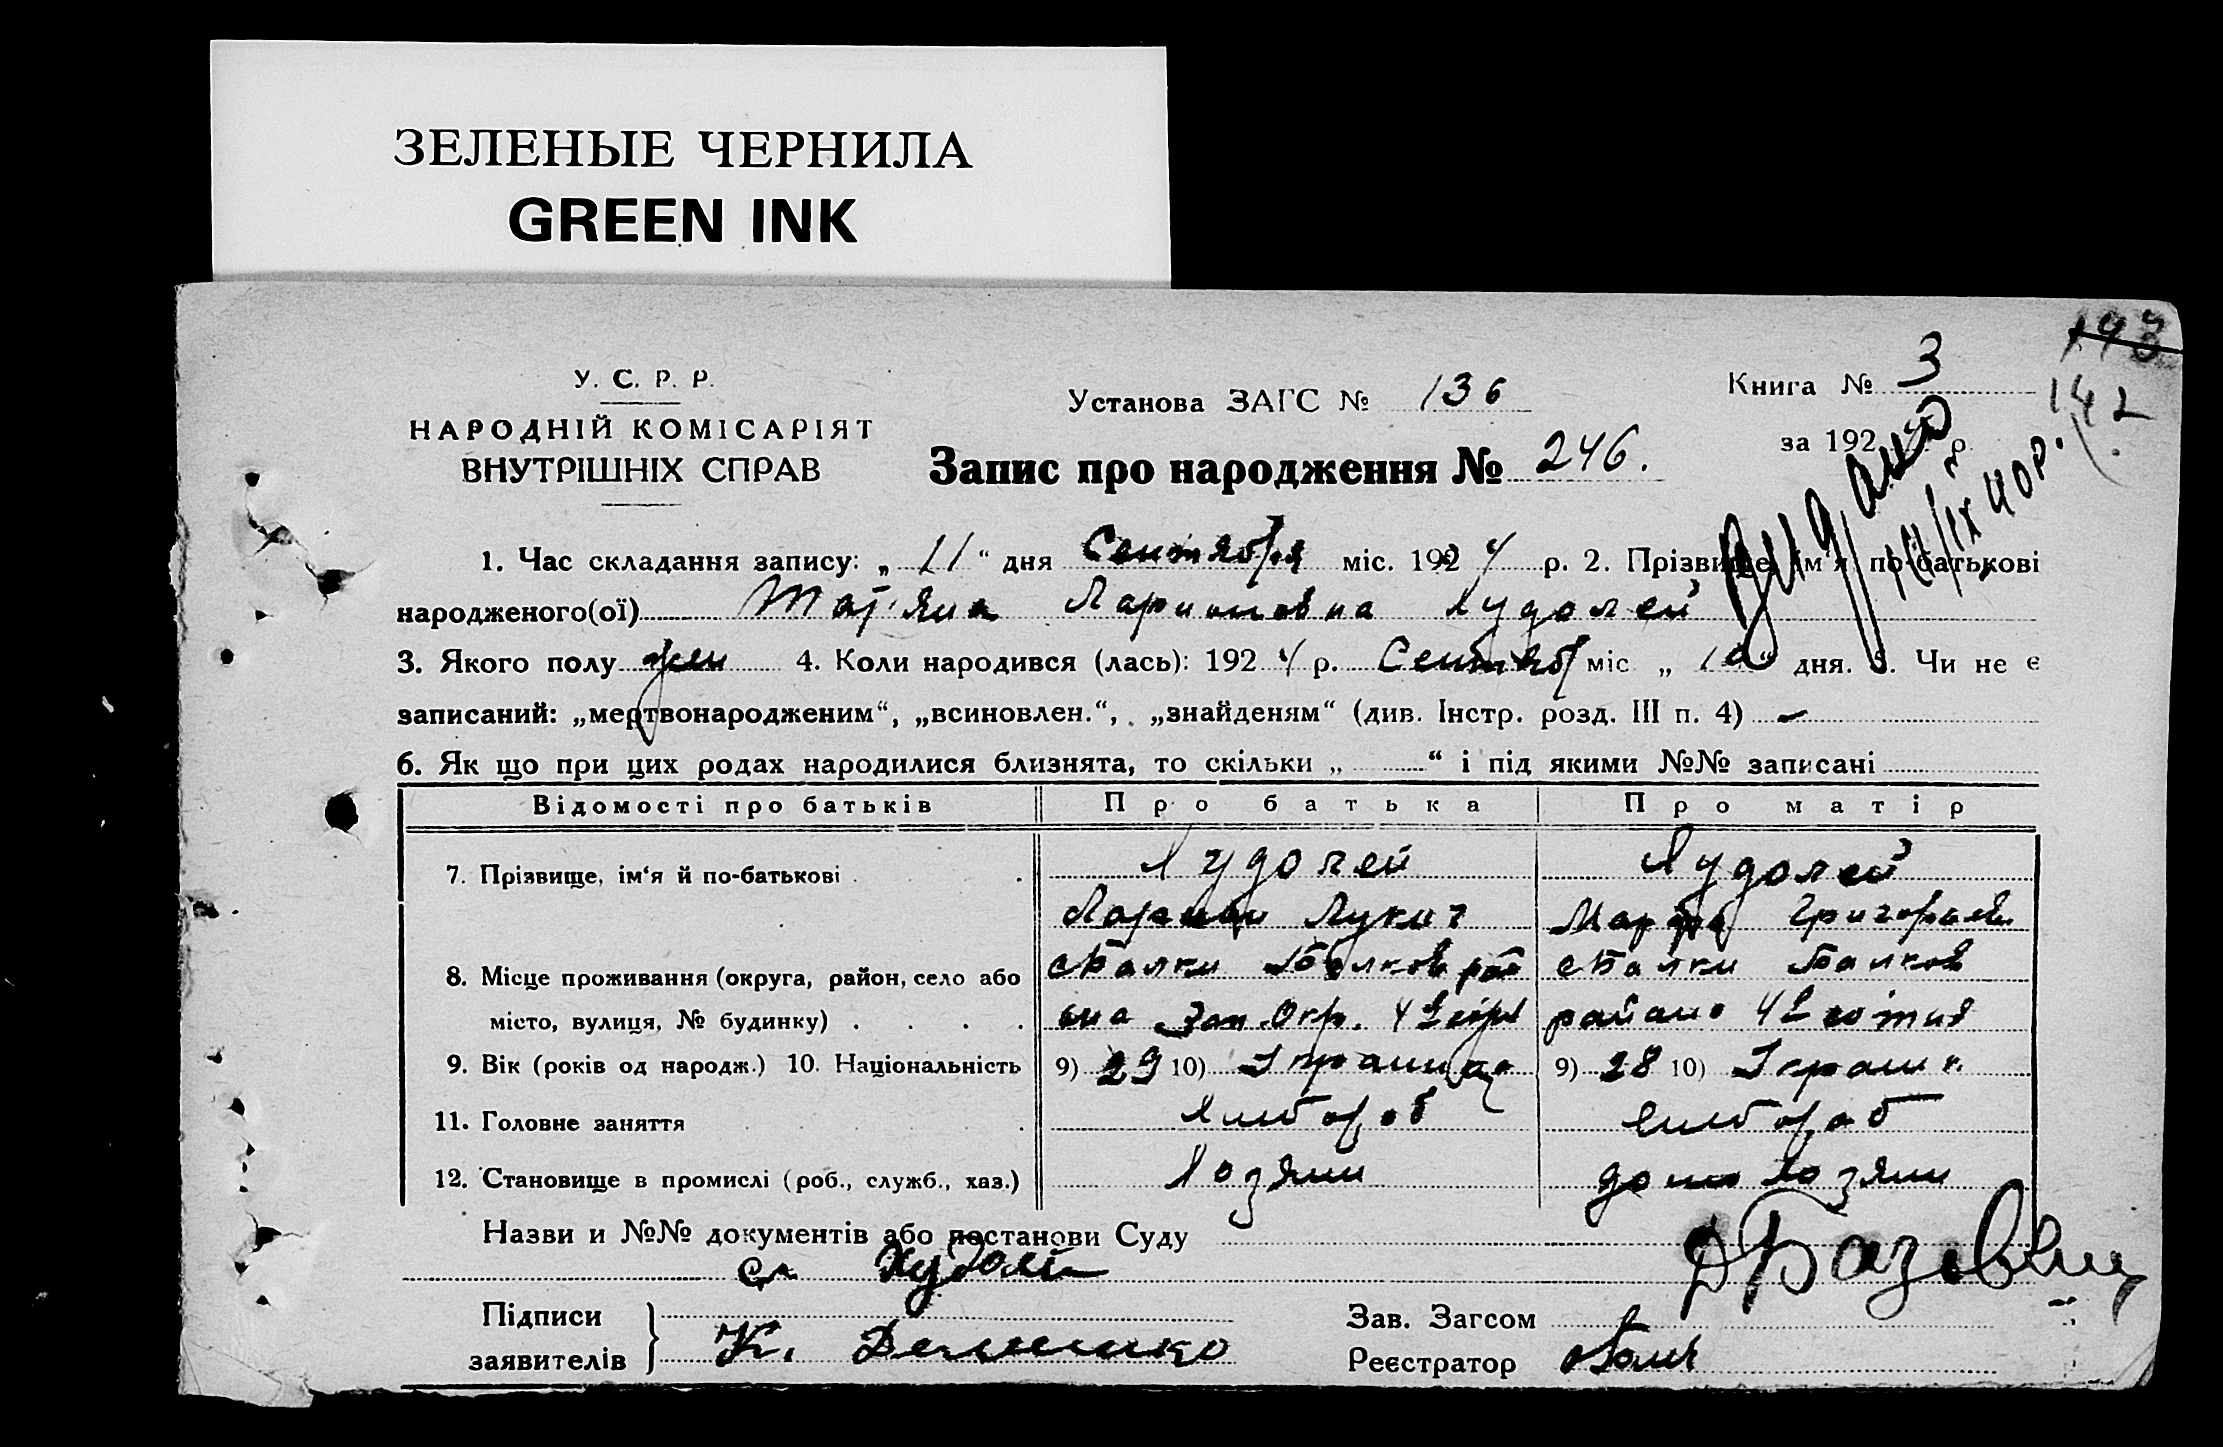 ЗЕЛЕНЫЕ ЧЕРНИЛА
GREEN INK
143
142
У. С. Р. Р.
НАРОДНІЙ КОМІСАРІЯТ
ВНУТРІШНІХ СПРАВ
Установа ЗАГС № 136
Книга № 3
за 192 4 р.
Запис про народження № 246.
1. Час складання запису: „ 11 “ дня Сентября міс. 192 4 р. 2. Прізвище, ім'я по-батькові
народженого(ої) Тат'яна Ларионовна Худолей
3. Якого полу жен 4. Коли народився (лась): 192 4 р. Сентяб міс „ 10 “ дня. 5. Чи не є
записаний: „мертвонародженим“, „всиновлен.“, „знайденям“ (див. Інстр. розд. III п. 4) —
6. Як що при цих родах народилися близнята, то скільки „ “ і під якими №№ записані
Відомості про батьків Про батька Про матір
7. Прізвище, ім‘я й по-батькові Худолей Худолей
Ларион Лукич Марфа Григорьев
8. Місце проживання (округа, район, село або с Балки Балков рай с Балки Балков
місто, вулиця, № будинку) она Зап. Окр. района
9. Вік (років од народж.) 10. Національність 9) 29 10) 9) 28 10)
11. Головне заняття Хлебороб Хлебороб
12. Становище в промислі (роб., служб., хаз.) Хозяин домохозяин
Назви и №№ документів або постанови Суду
Худолей
Підписи
заявителів
К.
Зав. Загсом
Реєстратор